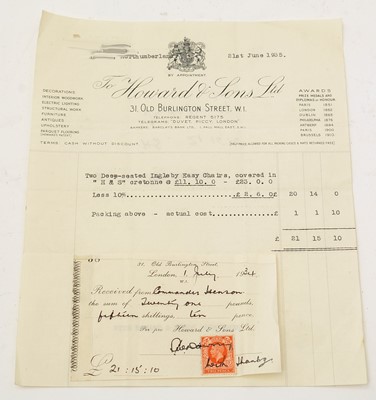 Northumberland
21st June 1935.
BY APPOINTMENT
To Howard & Sons Ltd
31, OLD BURLINGTON STREET, W.1.
TELEPHONE REGENT 5175
TELEGRAMS "DUVET, PICCY, LONDON"
BANKERS, BARCLAYS BANK LTD. 1 PALL MALL EAST, S.W.1
DECORATIONS
INTERIOR WOODWORK
ELECTRIC LIGHTING
STRUCTURAL WORK
FURNITURE
ANTIQUES
UPHOLSTERY
PARQUET FLOORING
AWARDS
PRIZE MEDALS AND
DIPLOMAS OF HONOUR
PARIS
LONDON
DUBLIN
PHILADELPHIA
ANTWERP
PARIS
BRUSSELS
TERMS CASH WITHOUT DISCOUNT
Two Deep-seated Ingleby Easy Chairs, covered in
"H & S" cretonne @ £11.10.0 - £23.0.0
Less 10% £2.6.0 20 14 0
Packing above - actual cost 1 1 10
£ 21 15 10
31, Old Burlington Street,
London, 1 July 1934
W.1.
Received from Commander
the sum of Twenty one pounds
fifteen shillings ten pence.
Per pro Howard & Sons Ltd.
£21:15:10
with thanks